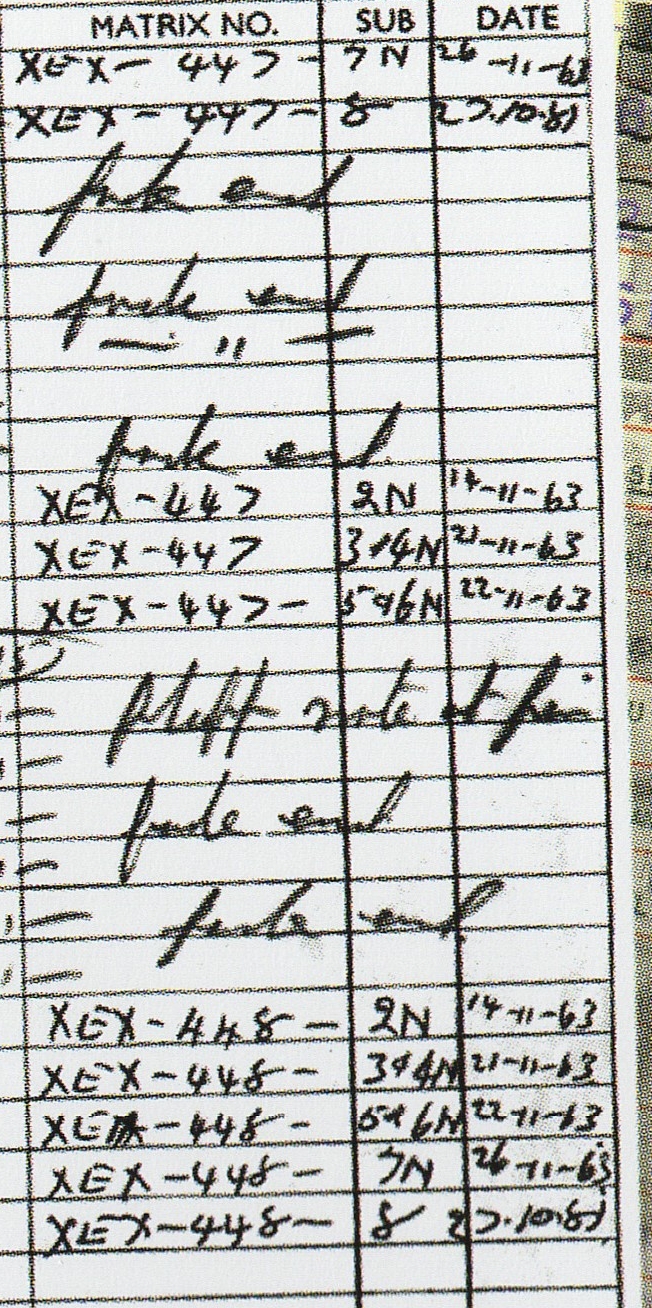 MATRIX NO. SUB DATE
XEX - 447 - 7N 26-11-63
XEX - 447 - 8 27.10.81
fade end
fade end
— " —
fade end
XEX - 447 2N 14-11-63
XEX - 447 3+4N 21-11-63
XEX - 447 - 5+6N 22-11-63
note at
fade end
fade end
XEX - 448 - 2N 14-11-63
XEX - 448 - 3+4N 21-11-63
XEX - 448 - 5+6N 22-11-63
XEX - 448 - 7N 26-11-63
XEX - 448 - 8 27.10.81